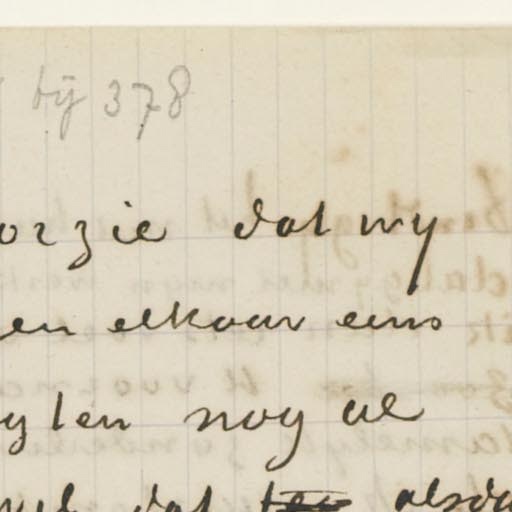 bij 378
orzie dat wy
en elkaar eens
yten nog al
dat